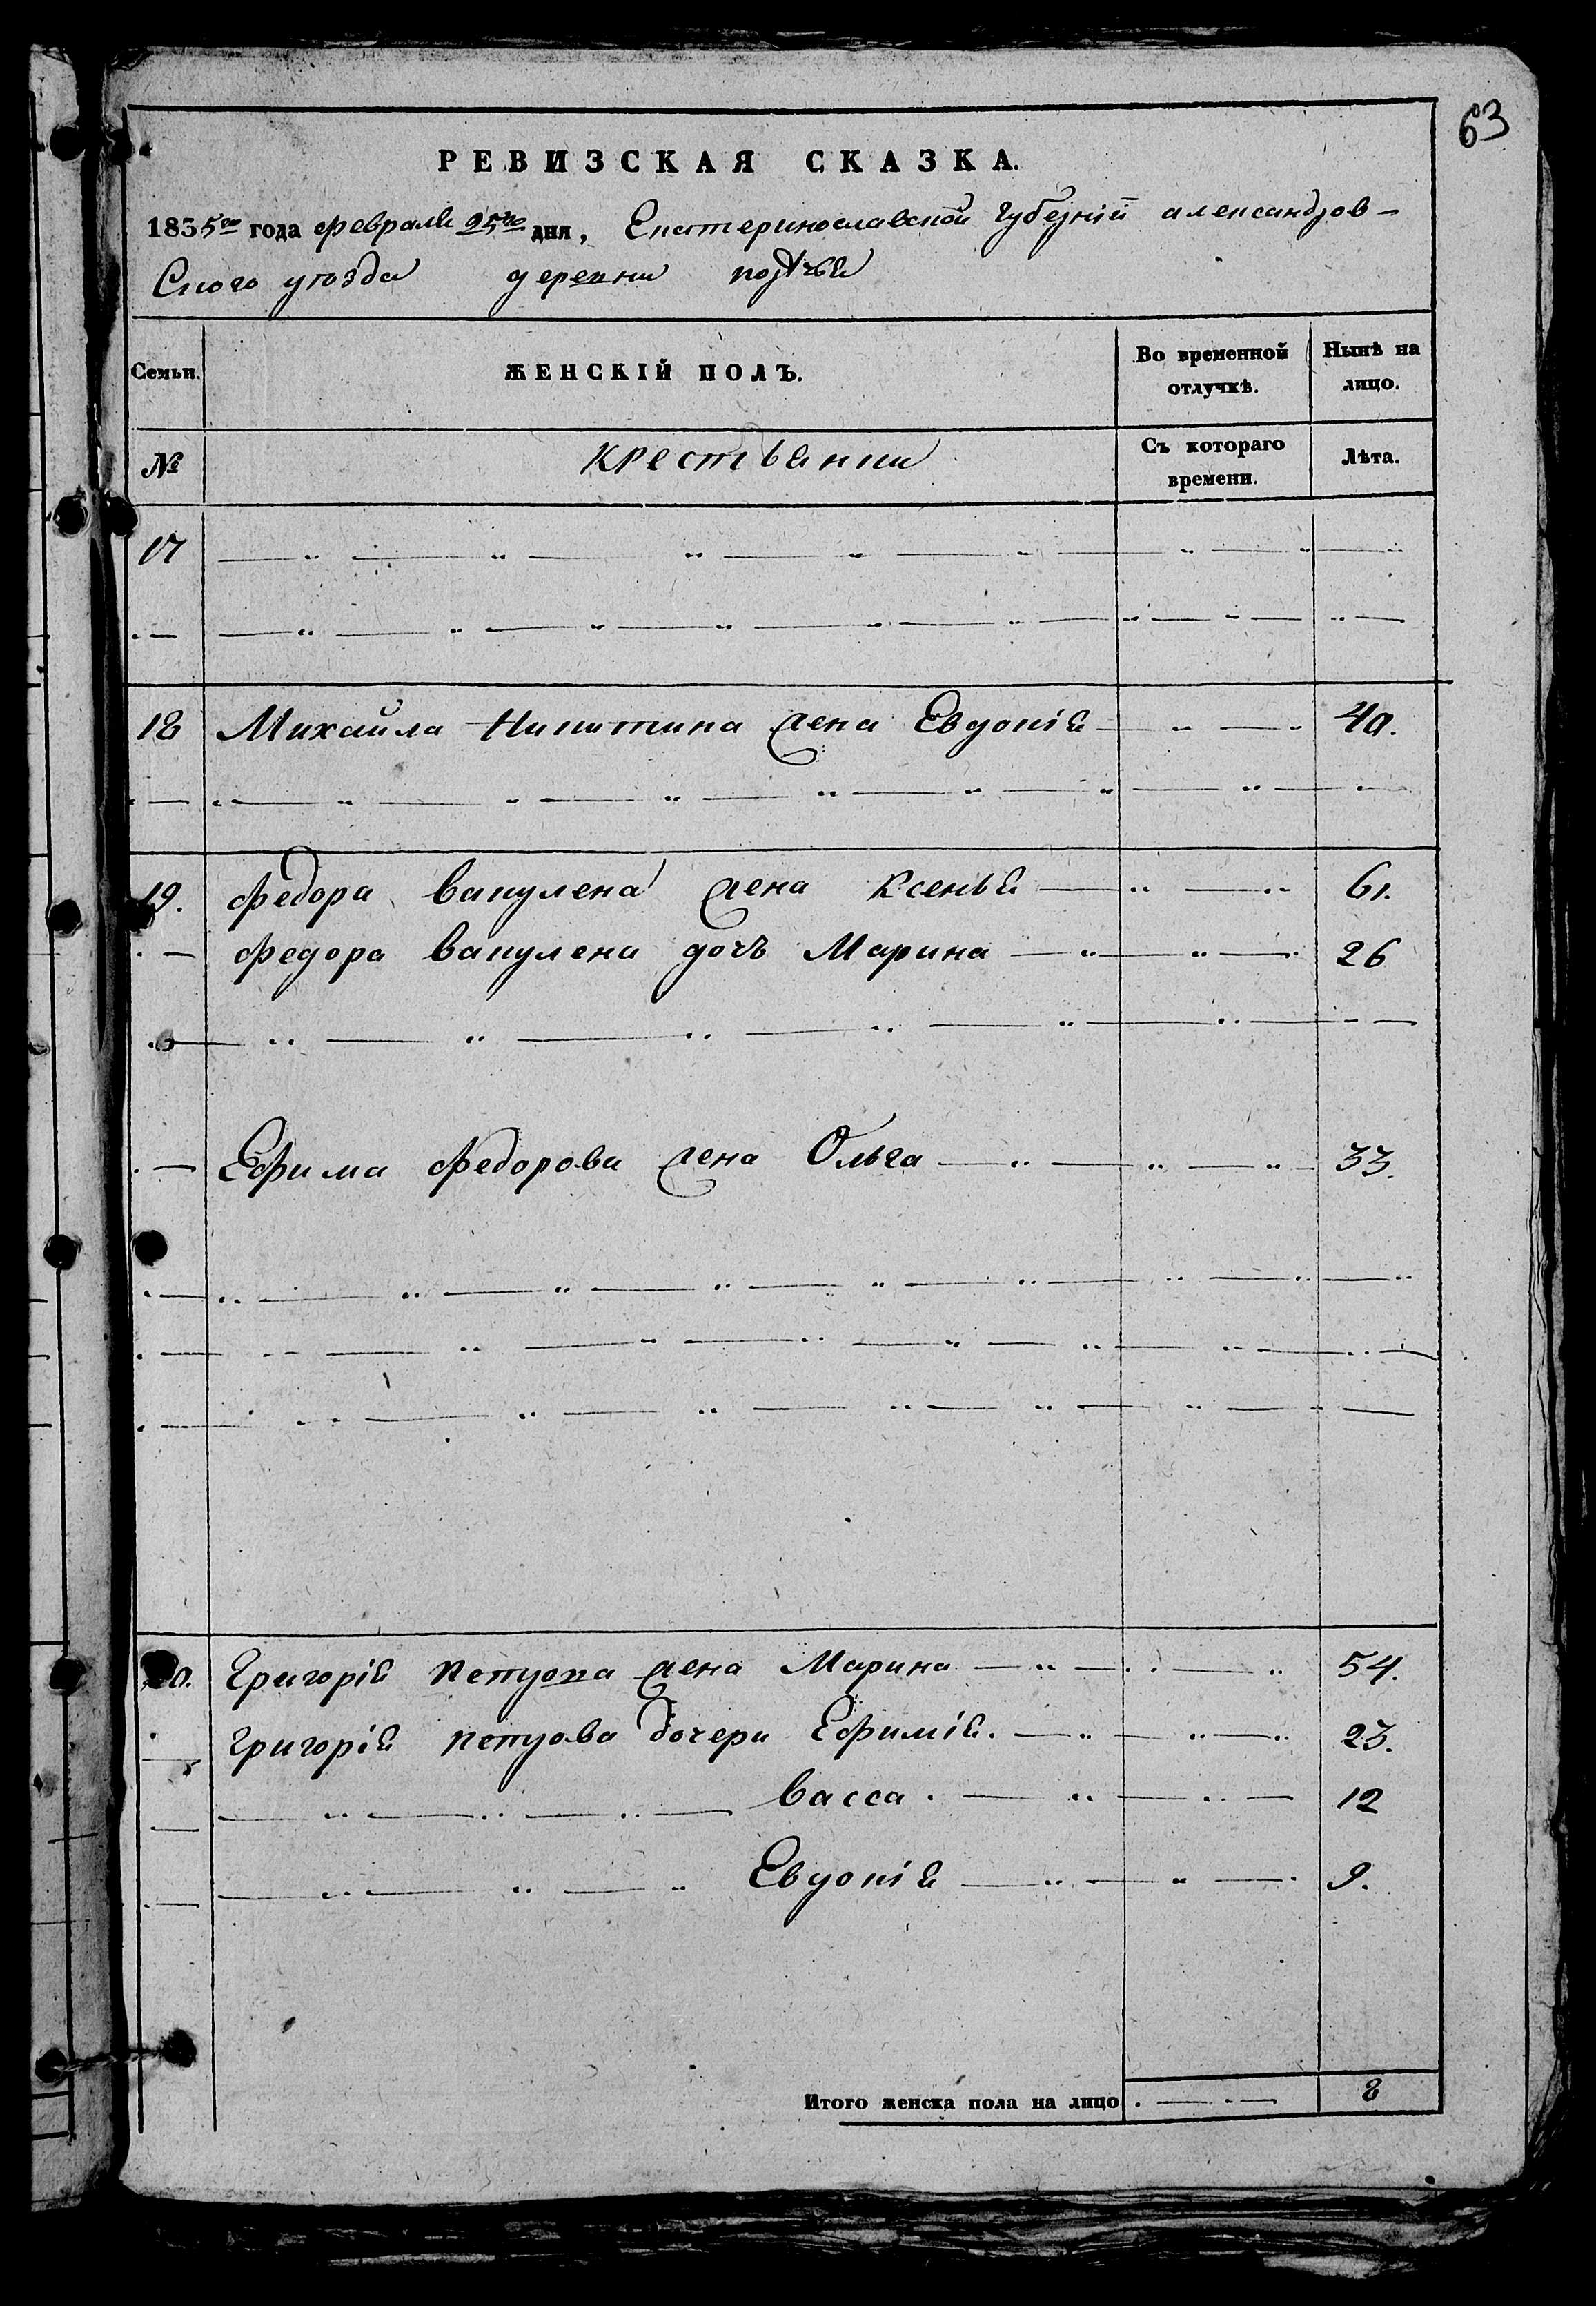 63
РЕВИЗСКАЯ СКАЗКА.
1835го года февраля 25го дня, Екатеринославской губернiи александров-
Скаго уѣзда деревни
Семьи. ЖЕНСКIЙ ПОЛЪ. Во временной отлучкѣ. Нынѣ на лицо.
№ крестьянки Съ котораго времени. Лѣта.
17
18 Михайла Никитина жена Евдокiя 40.
19. Федора вакулена жена Ксенья 61.
Федора вакулена дочь Марина 26
Ефима Федорова жена Ольга 33.
20. Григорiя петрова жена Марина 54.
Григорiя петрова дочери Ефимiя. 23.
васса. 12
Евдокiя 9.
Итого женска пола на лицо 8